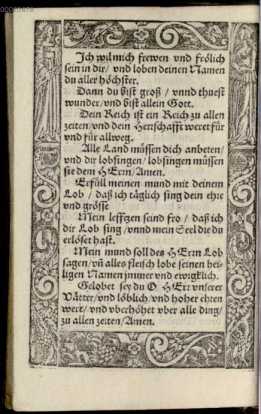 Jch wil mich frewen vnd frölich
sein in dir/ vnd loben deinen Namen
du aller höchster.
Dann du bist groß / vnnd thuest
wunder/ vnd bist allein Gott.
Dein Reich ist ein Reich zu allen
zeiten/ vnd dein Herrschafft weret für
vnd für allweg.
Alle Land müssen dich anbeten/
vnd dir lobsingen/ lobsingen müssen
sie dem HErrn/ Amen.
Erfüll meinen mund mit deinem
Lob / daß ich täglich sing dein ehre
vnd grösse
Mein leffzen seind fro / daß ich
dir Lob sing/ vnnd mein Seel die du
erlöset hast.
Mein mund soll des HErrn Lob
sagen/ vñ alles fleisch lobe seinen hei-
ligen Namen jmmer vnd ewigklich.
Gelobet sey du O HErr vnserer
Vätter/ vnd löblich/ vnd hoher ehren
wert/ vnd vberhöhet vber alle ding/
zu allen zeiten/ Amen.